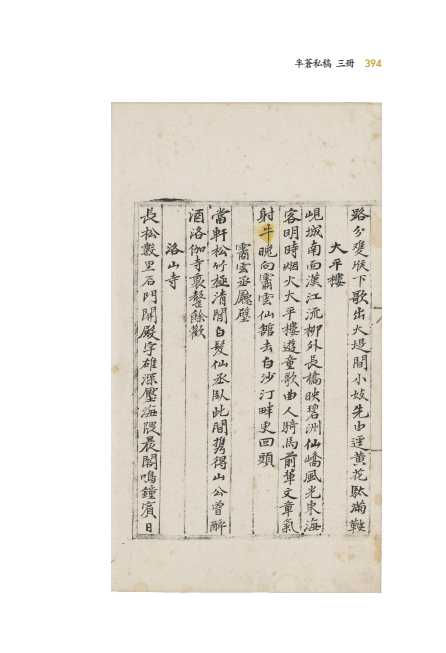 半蒼私稿 三冊 394
路分雙堠下歌出大堤間小妓先由逕黃花馱滿鞍
大平樓
峴城南面漢江流柳外長橋映碧洲仙嶠風光東海
客明時烟火大平樓遊童歌曲人騎馬前輩文章氣
射斗晚向霱雲仙館去白沙汀畔更回頭
霱雲丞廳壁
當軒松竹極清閒白髮仙丞臥此間携得山公曾醉
酒洛伽寺裏整餘歡
洛山寺
長松數里石門開殿宇雄深壓海隈晨閣鳴鐘賓日